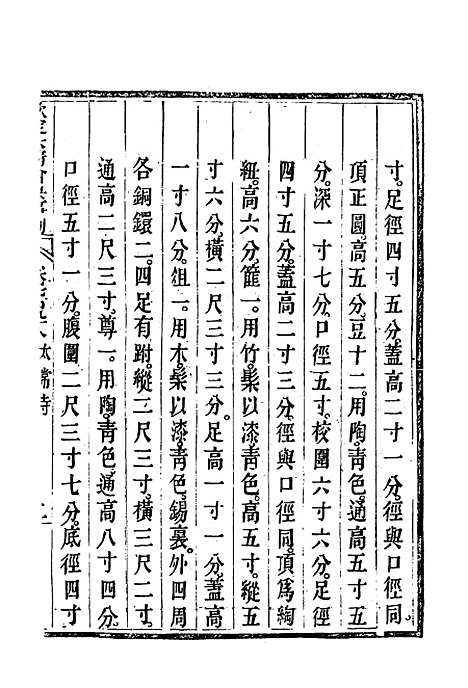 寸。足徑四寸五分。蓋高二寸一分。徑與口徑同。
頂正圓。高五分。豆十二。用陶。靑色。通高五寸五
分。深一寸七分。口徑五寸。校圍六寸六分。足徑
四寸五分。蓋高二寸三分。徑與口徑同。頂爲綯
紐。高六分。篚一。用竹。髹以漆。靑色。高五寸。縱五
寸六分。橫二尺三寸三分。足高一寸一分。蓋高
一寸八分。俎二。用木。髹以漆。靑色。錫裏。外四周
各銅鐶二。四足有跗。縱二尺三寸。橫三尺二寸。
通高二尺三寸。尊一。用陶。靑色。通高八寸四分。
口徑五寸一分。腹圍二尺三寸七分。底徑四寸